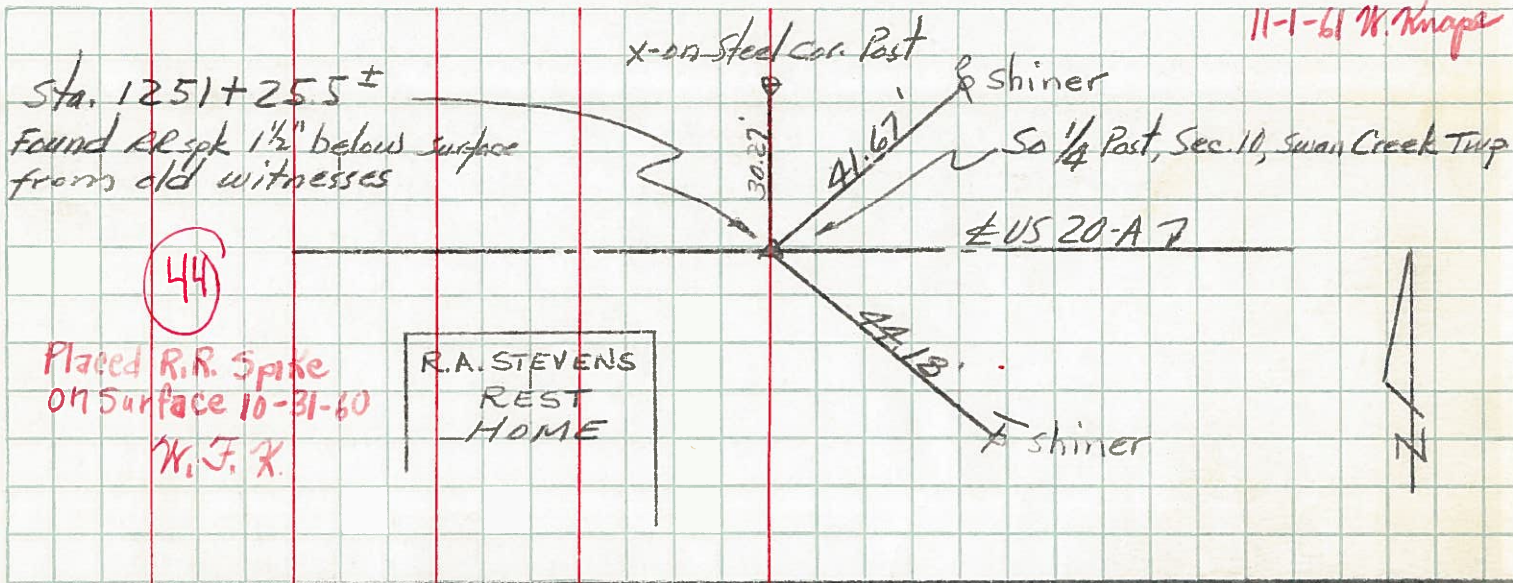 11-1-61 W. Knape
X-on-Steel Cor. Post
Sta. 1251+25.5 ±
Found RR spk 1½" below surface
from old witnesses
shiner
So ¼ Post, Sec. 10, Swan Creek Twp
30.27'
41.67'
℄ US 20-A
44
44.18'
Placed R.R. Spike
on Surface 10-31-60
W. F. K.
R.A. STEVENS
REST
HOME
shiner
N